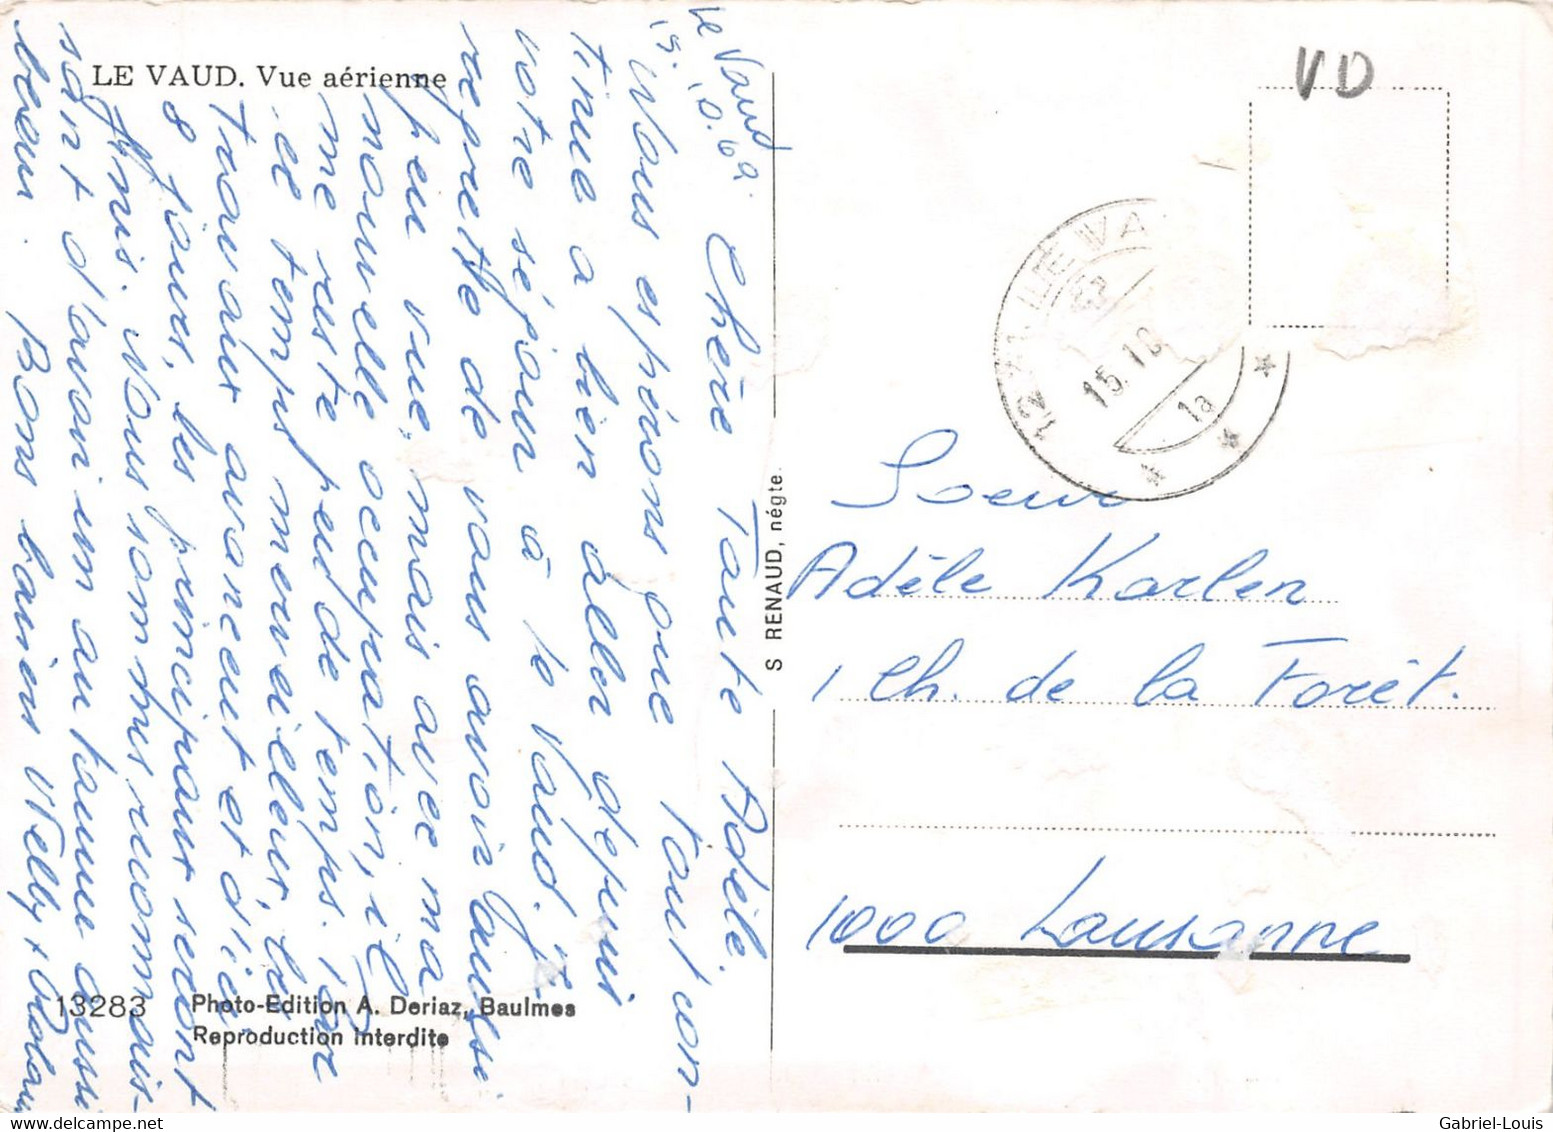 LE VAUD. Vue aérienne
Le Vaud
15.10.69.
Chère Tante Adèle.
Nous espérons que tout con-
tinue à bien aller depuis
votre séjour à le Vaud. Je
regrette de vous avoir aussi
peu vue, mais avec ma
nouvelle occupation, il
me reste peu de temps. Par
ce temps merveilleux, les
travaux avancent et d'ici
8 jours, les principaux seront
finis. Nous sommes reconnais-
sant d'avoir un automne aussi
beau. Bons baisers Welly + Rolan
13283 Photo-Edition A. Deriaz, Baulmes
Reproduction interdite
S RENAUD, négte.
VD
1261 LE VA
15.10
1a
Soeur
Adèle Karlen
1 Ch. de la Forêt.
1000 Lausanne
Gabriel-Louis